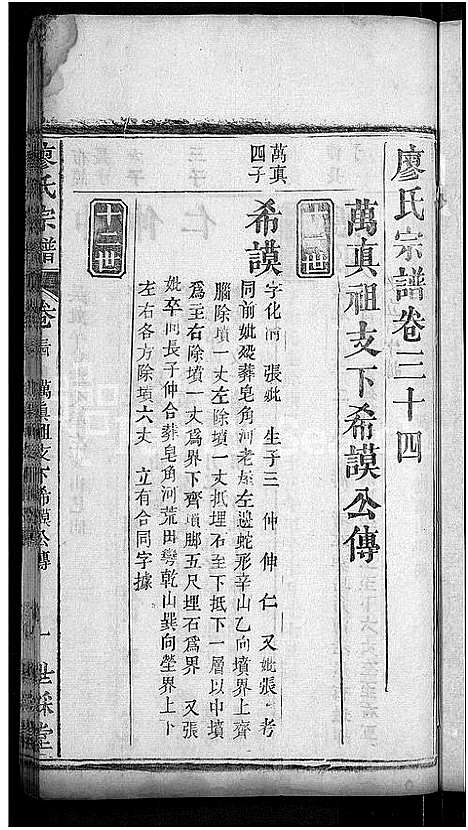 廖氏宗譜卷三十四
萬真祖支下希謨公傳
十二世
萬真
四子
希謨
字化 張 妣 生子三 仲 仲 仁 又妣張 考
同前妣歿葬皂角河老屋左邊蛇形辛山乙向墳界上齊
腦除墳一丈左除墳一丈抵埋石至下抵下一層以中墳
爲主右除墳一丈爲界下齊墳脚五尺埋石爲界 又張
妣卒同長子仲合葬皂角河荒田彎乾山巽向塋界上下
左右各方除墳六丈 立有合同字據
十三世
廖氏宗譜
卷 萬真祖支下希謨公傳
一 世綵堂